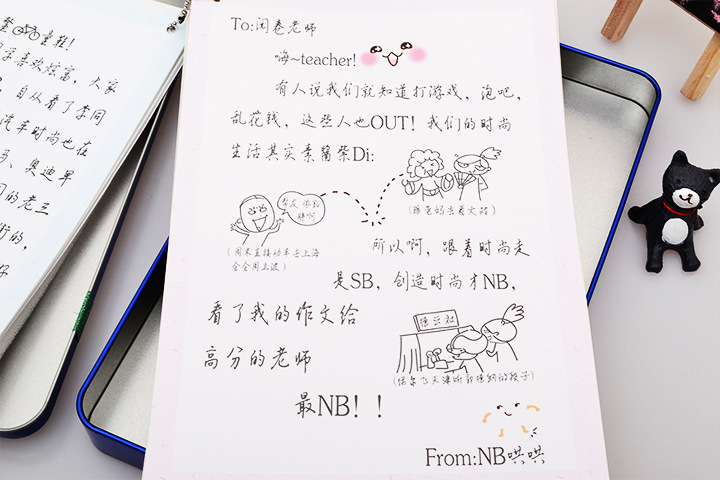 童鞋!
喜欢炫富，大家
，自从看了李同
汽车时尚也在
马、奥迪早
的老三
街的，
To:阅卷老师
嗨~teacher!
有人说我们就知道打游戏，泡吧，
乱花钱，这些人也OUT！我们的时尚
生活其实素酱紫Di:
(陪老妈去看大棚)
(周末直接动车去上海
会会周立波)
所以啊，跟着时尚走
是SB，创造时尚才NB，
看了我的作文给
高分的老师
德云社
(偶尔飞天津听郭德纲的段子)
最NB！！
From:NB哄哄